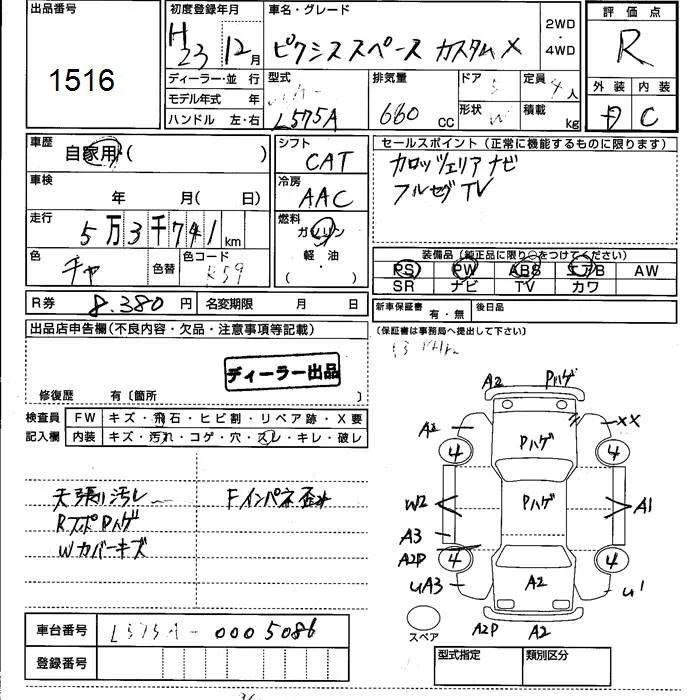 出品番号
1516
初度登録年月
H23 12月
車名・グレード
ピクシススペース カスタムX
2WD
・
4WD
評価点
R
外装 内装
D C
ディーラー・並行
モデル年式 年
ハンドル 左・右
型式
L575A
排気量
660 CC
ドア
形状
定員 4人
積載 kg
車歴
自家用( )
車検
年 月( 日)
走行
5万3千741km
色
チャ
色替
色コード
R59
シフト
CAT
冷房
AAC
燃料
ガソリン
軽・油
( )
セールスポイント(正常に機能するものに限ります)
カロッツェリアナビ
フルセグTV
装備品(純正品に限り○をつけてください)
PS PW ABS エアB AW
SR ナビ TV カワ
R券 8,380円
名変期限 月 日
新車保証書 有・無
後日品
(保証書は事務局へ提出して下さい)
出品店申告欄(不良内容・欠品・注意事項等記載)
ディーラー出品
修復歴 有〔箇所 〕
検査員記入欄
FW キズ・飛石・ヒビ割・リペア跡・X要
内装 キズ・汚れ・コゲ・穴・スレ・キレ・破レ
天張り汚レ
Fインパネ歪み
RスポPハゲ
Wカバーキズ
A2 Pハゲ
A2 XX
4 Pハゲ 4
W2 Pハゲ A1
A3
A2P
4 4
UA3 A2 U1
スペア
A2P A2
車台番号 L575A-0005086
登録番号
型式指定
類別区分